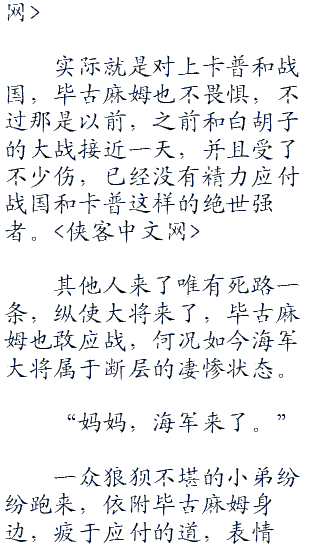 网>
实际就是对上卡普和战
国，毕古麻姆也不畏惧，不
过那是以前，之前和白胡子
的大战接近一天，并且受了
不少伤，已经没有精力应付
战国和卡普这样的绝世强
者。<侠客中文网>
其他人来了唯有死路一
条，纵使大将来了，毕古麻
姆也敢应战，何况如今海军
大将属于断层的凄惨状态。
“妈妈，海军来了。”
一众狼狈不堪的小弟纷
纷跑来，依附毕古麻姆身
边，疲于应付的道，表情